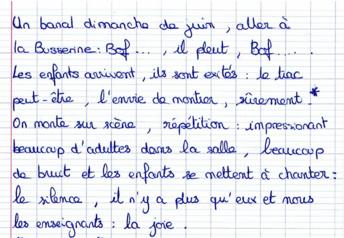 Un banal dimanche de juin, aller à
la Busserine : Bof..., il pleut, Bof.....
Les enfants arrivent, ils sont exités : le trac
peut-être, l'envie de montrer, sûrement.*
On monte sur scène, répétition : impressionant
beaucoup d'adultes dans la salle, beaucoup
de bruit et les enfants se mettent à chanter :
le silence, il n'y a plus qu'eux et nous
les enseignants : la joie.